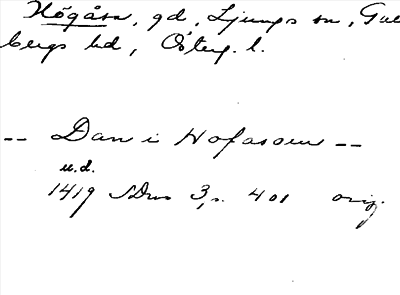 Högåsa, gd, Ljungs sn, Gull
bergs hd, Österg. l.
-- Dan i Hofasom --
u.d.
1419 SDns 3, s. 401 orig.